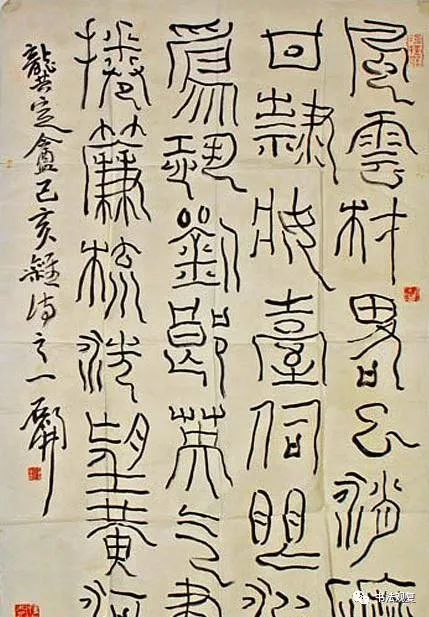 風雲材畧已消磨
甘隸妝臺伺眼波
爲恐劉郎英气盡
捲簾梳洗望黃河
龔定盦己亥雜詩之一
书法观复